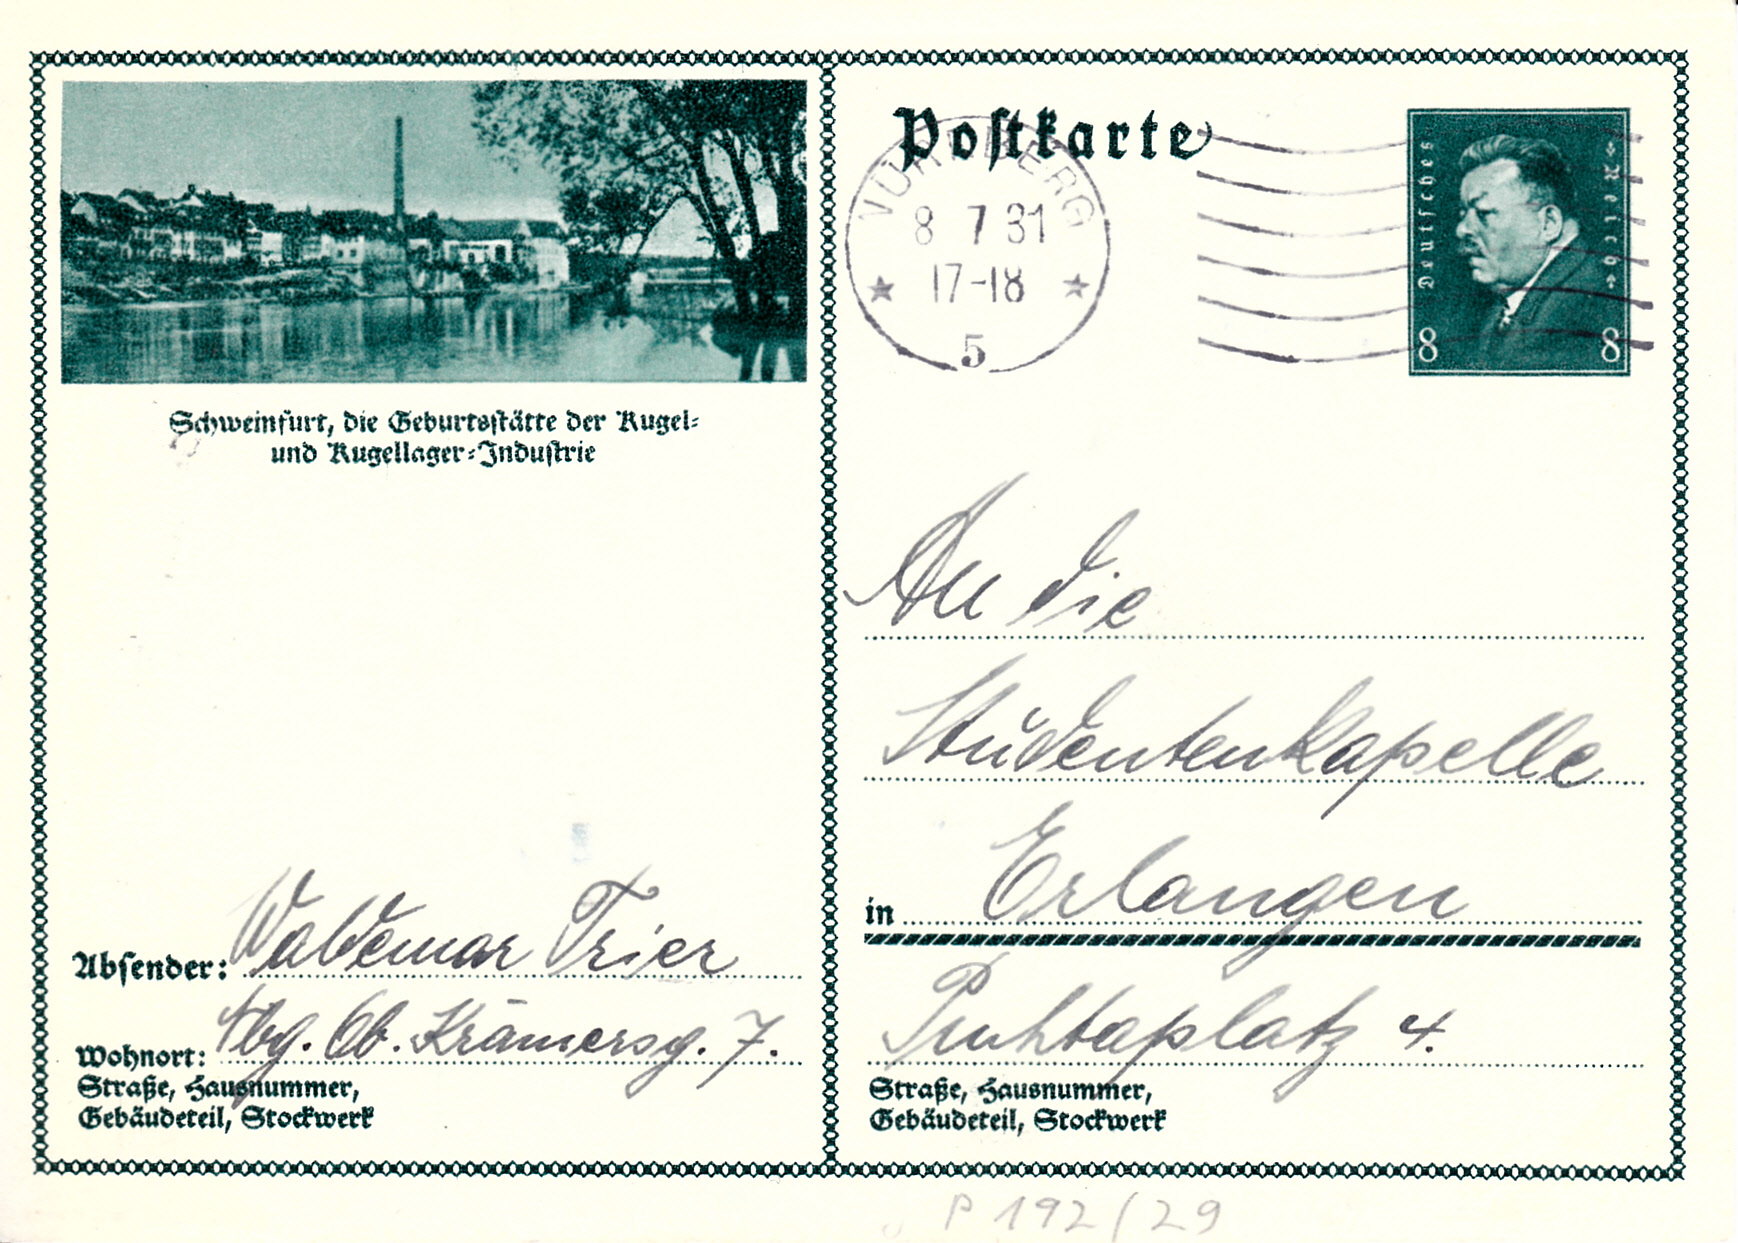 Schweinfurt, die Geburtsstätte der Kugel-
und Kugellager-Industrie
Absender: Waldemar Trier
Wohnort: Nbg. Ob. Krämersg. 7.
Straße, Hausnummer,
Gebäudeteil, Stockwerk
Postkarte
NÜRNBERG
8 7 31
17-18
5
Deutsches Reich
8 8
An die
Studentenkapelle
in Erlangen
Puchtaplatz 4.
Straße, Hausnummer,
Gebäudeteil, Stockwerk
P 192/29